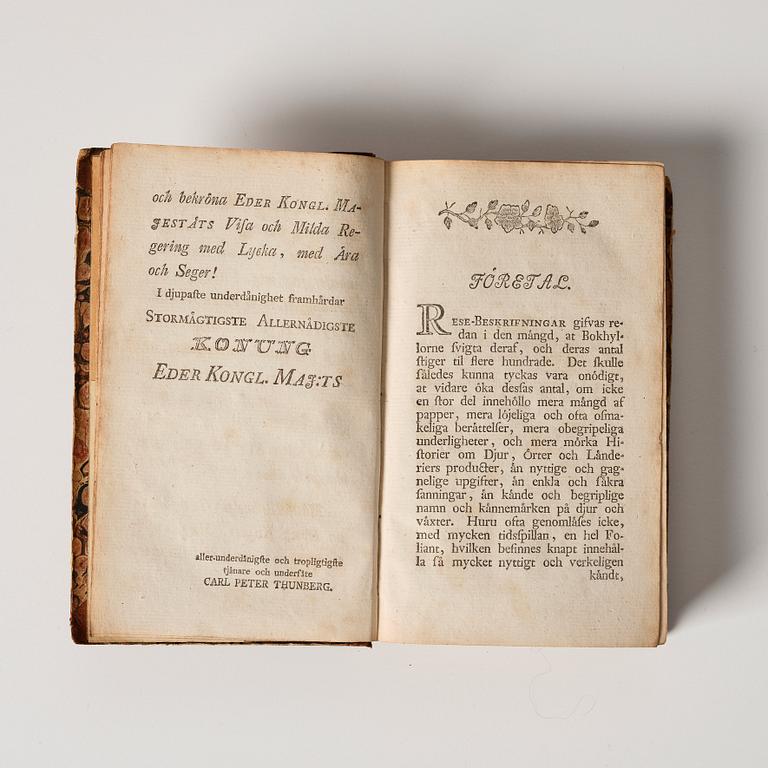 och bekröna EDER KONGL. MA-
JESTÄTS Visa och Milda Re-
gering med Lycka, med Ära
och Seger!
I djupaste underdånighet framhärdar
STORMÄGTIGSTE ALLERNÅDIGSTE
KONUNG
EDER KONGL. MAJ:TS
aller-underdånigste och tropligtigste
tjänare och undersåte
CARL PETER THUNBERG.
FÖRETAL.
RESE-BESKRIFNINGAR gifvas re-
dan i den mängd, at Bokhyl-
lorne svigta deraf, och deras antal
stiger til flere hundrade. Det skulle
således kunna tyckas vara onödigt,
at vidare öka dessas antal, om icke
en stor del innehöllo mera mängd af
papper, mera löjeliga och ofta osma-
keliga berättelser, mera obegripeliga
underligheter, och mera mörka Hi-
storier om Djur, Örter och Lände-
riers producter, än nyttige och gag-
nelige upgifter, än enkla och säkra
sanningar, än kände och begriplige
namn och kännemärken på djur och
växter. Huru ofta genomläses icke,
med mycken tidsspillan, en hel Fo-
liant, hvilken befinnes knapt innehål-
la så mycket nyttigt och verkeligen
kändt,